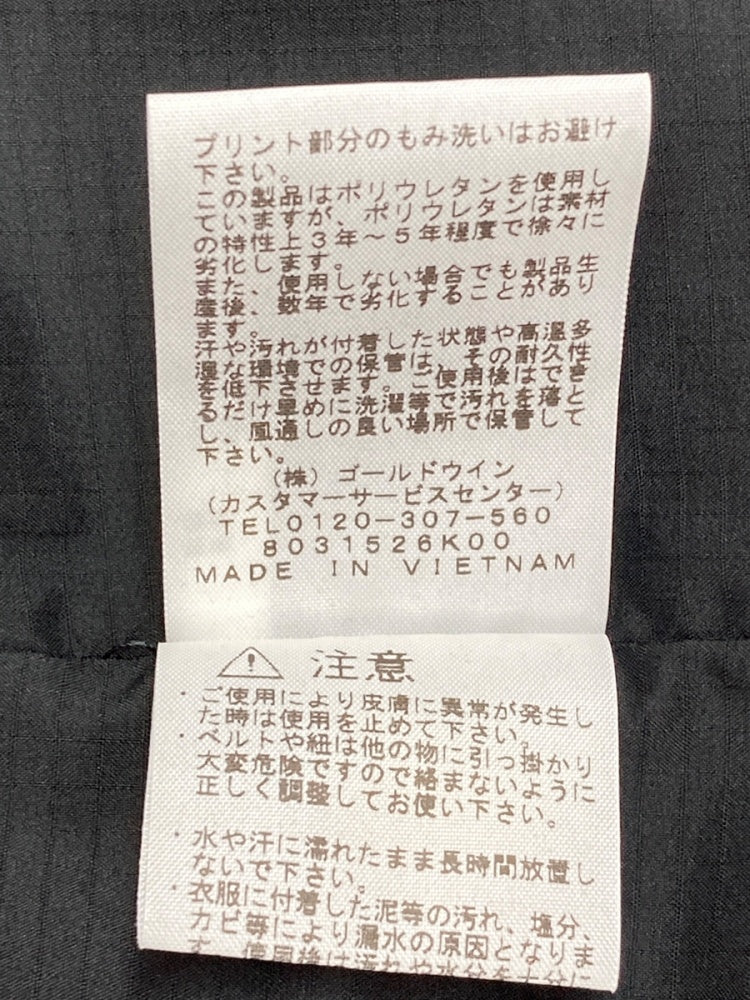 プリント部分のもみ洗いはお避け
下さい。
この製品はポリウレタンを使用し
ていますが、ポリウレタンは素材
の特性上3年～5年程度で徐々に
劣化します。
また、使用しない場合でも製品生
産後、数年で劣化することがあり
ます。
汗や汚れが付着した状態や高温多
湿な環境での保管は、その耐久性
を低下させます。ご使用後はでき
るだけ早めに洗濯等で汚れを落と
し、風通しの良い場所で保管して
下さい。
(株) ゴールドウイン
(カスタマーサービスセンター)
TEL0120-307-560
8031526K00
MADE IN VIETNAM
⚠ 注意
・ご使用により皮膚に異常が発生し
た時は使用を止めて下さい。
・ベルトや紐は他の物に引っ掛かり
大変危険ですので絡まないように
正しく調整してお使い下さい。
・水や汗に濡れたまま長時間放置し
ないで下さい。
・衣服に付着した泥等の汚れ、塩分、
カビ等により漏水の原因となりま
す。使用後は汚れや水分を十分に